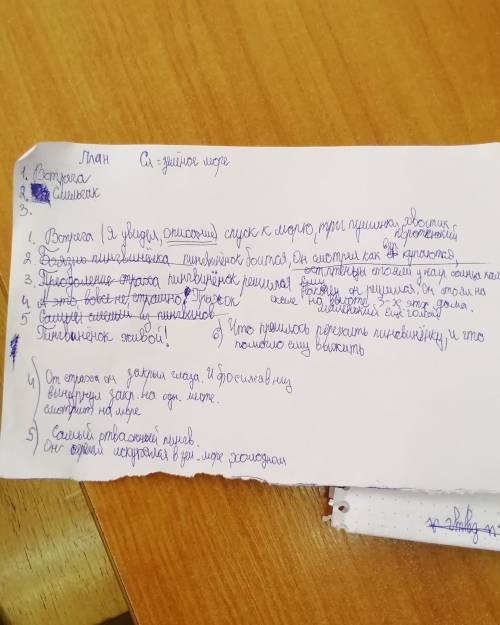 План Сл = зелёное море
1. Встреча
2. Смельчак
3.
1. Встреча (Я увидел, описание) спуск к морю, три пушинки, хвостик коротенький
2. Боязнь пингвинёнка пингвинёнок боится, Он смотрел как все купаются,
3. Преодоление страха пингвинёнок решился наконец он решился. Он стоял на
4. А это вовсе не страшно! Прыжок скале на высоте 3-х этаж. дома.
маленький ещё голый
5 Самый смелый из пингвинов
Пингвинёнок живой! Что пришлось пережить пингвинёнку, и что
помогло ему выжить
4) От страха он закрыл глаза. И бросился вниз
вынырнул закр. на одн. месте.
смотрит на море
5) Самый отважный пингв.
Он искупался в зел. море холодном